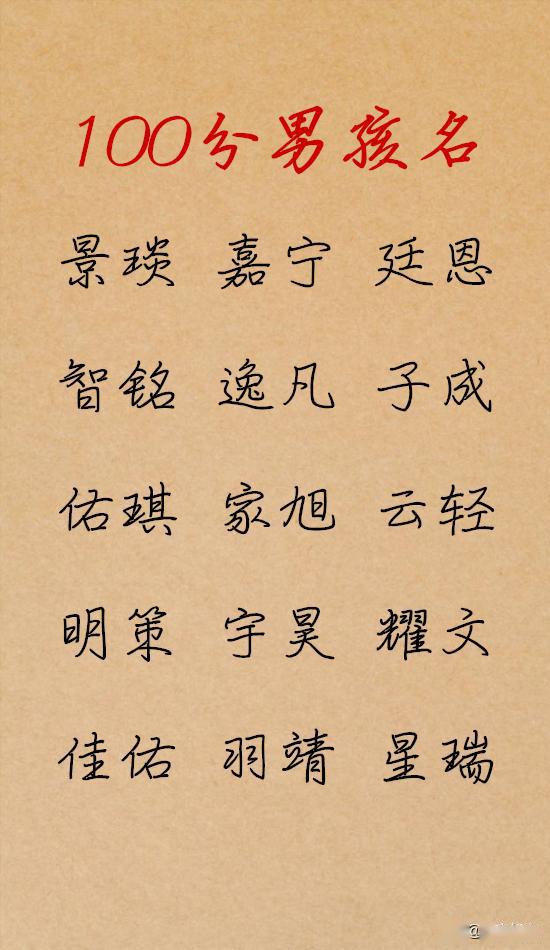 100分男孩名
景琰 嘉宁 廷恩
智铭 逸凡 子成
佑琪 家旭 云轻
明策 宇昊 耀文
佳佑 羽靖 星瑞
@